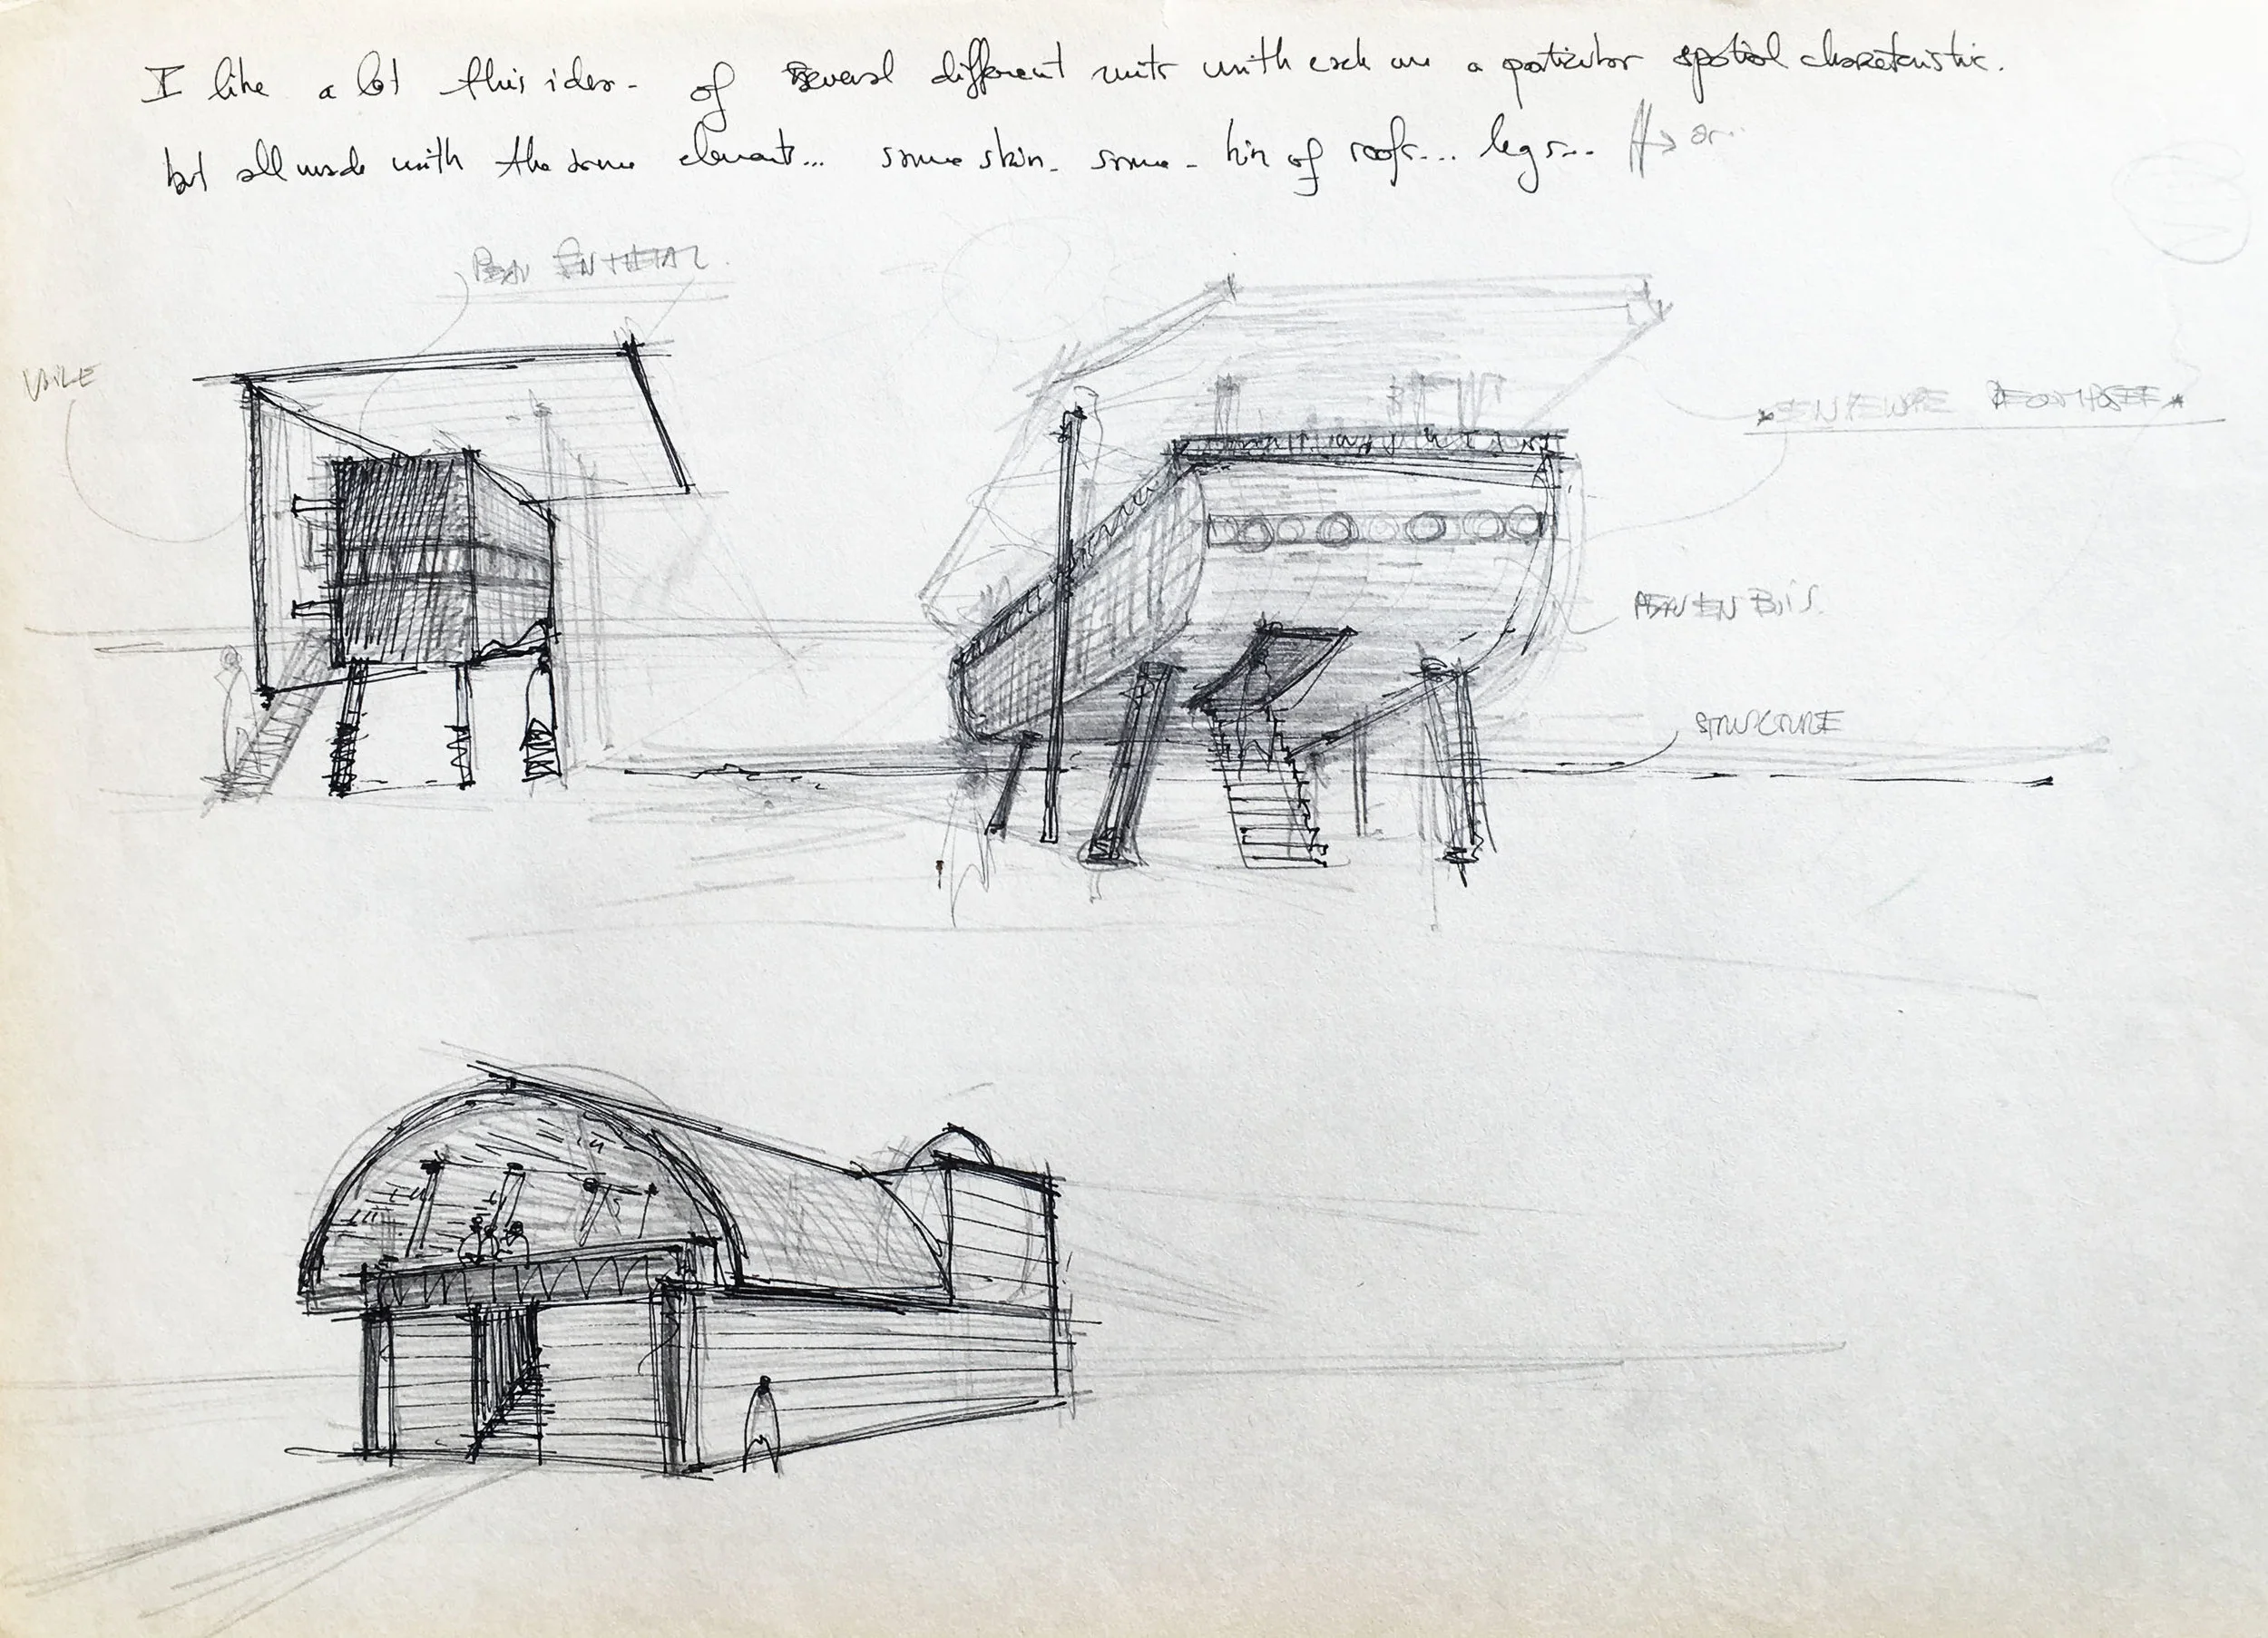 I like a lot this idea - of several different units with each one a particular spatial characteristic.
but all made with the same elements... same skin - same - kin of roofs... legs...
PEAU EN METAL.
VOILE
PEAU EN BOIS.
STRUCTURE